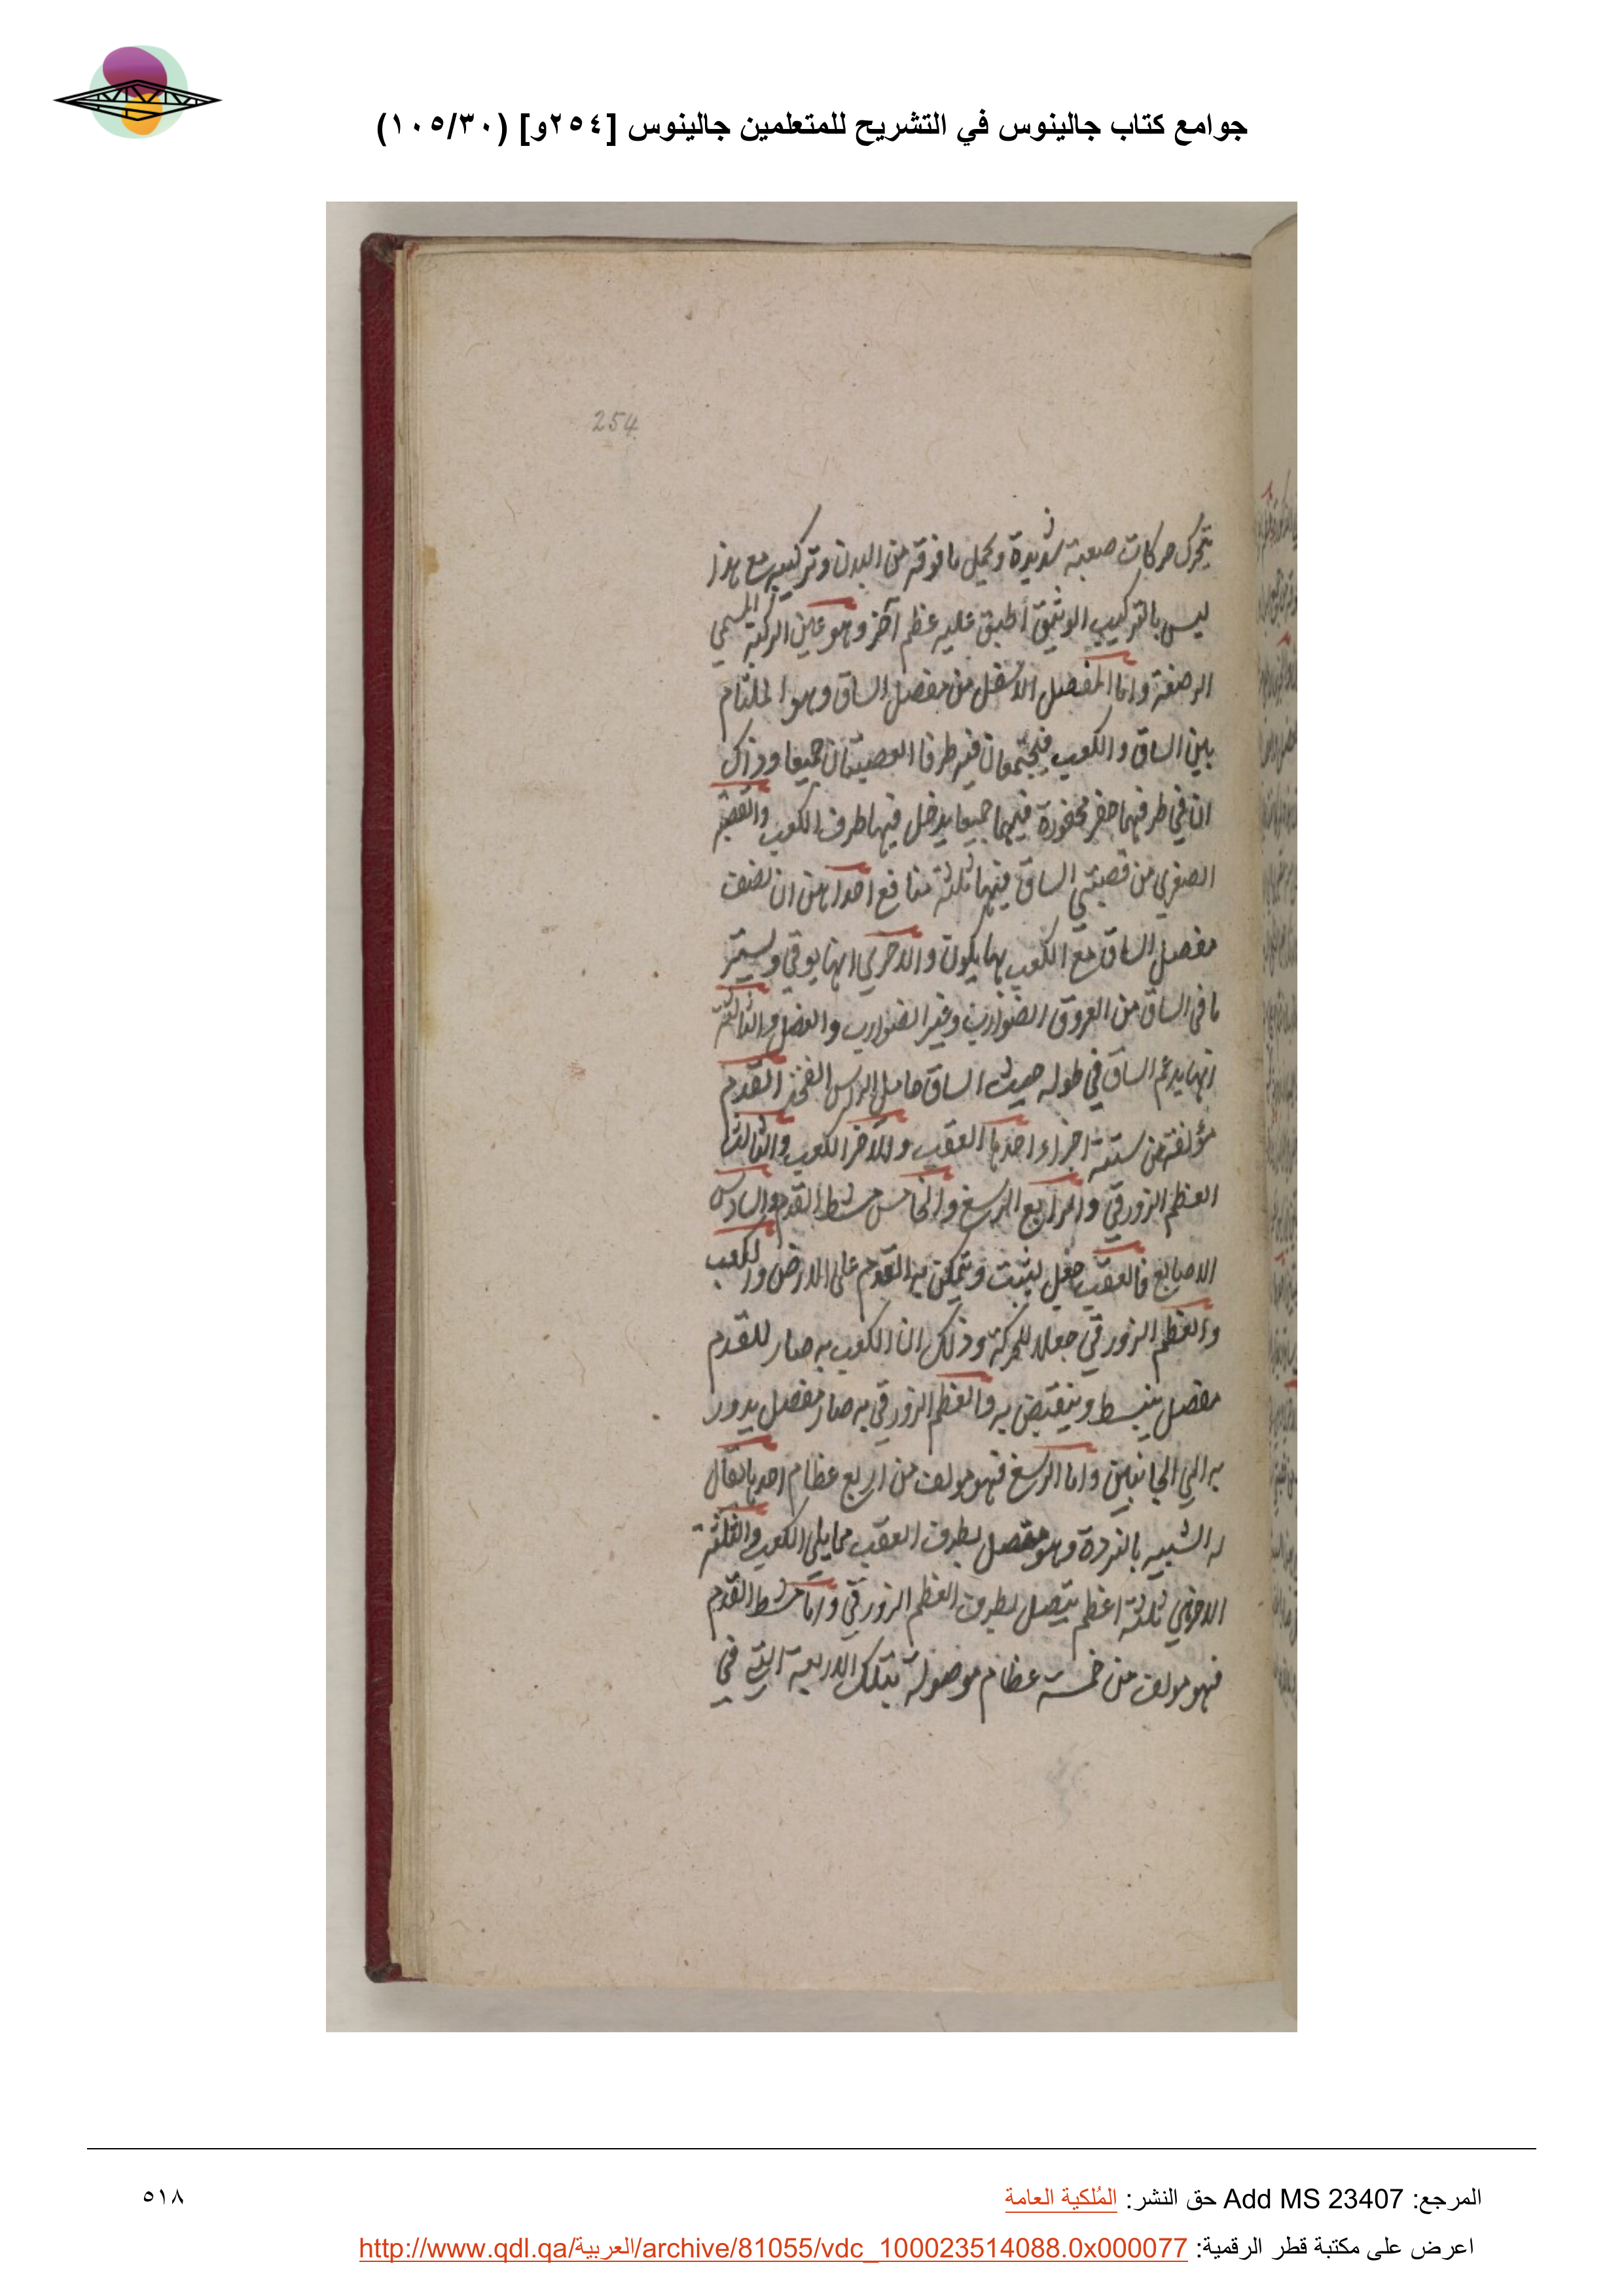 جوامع كتاب جالينوس في التشريح للمتعلمين جالينوس [٢٥٤و] (١٠٥/٣٠)
254
يتحرك حركات صعبة شديدة ويحمل ما فوقه من البدن وتركيبه مع هذا
ليس بالتركيب الوثيق أطبق عليه عظم آخر وهو عين الركبة المسمي
الرضفة واما المفصل الاسفل من مفصل الساق وهو الملتام
بين الساق والكعب فيجتمعان فيه طرفا القصبتان جميعا وذاك
ان في طرفيهما حفر محفورة فيهما جميعا يدخل فيها طرف الكعب والقصبة
الصغري من قصبتي الساق فيها ثلثة منافع احداهن ان نصف
مفصل الساق مع الكعب بها يكون والاخري انها يوقي ويستر
ما في الساق من العروق الضوارب وغير الضوارب والعضل والثالثة
انها يدعم الساق في طوله حيث الساق حامل لراس الفخذ القدم
مؤلفة من ستة اجزاء احدها العقب والاخر الكعب والثالث
العظم الزورقي والرابع الرسغ والخامس مشط القدم والسادس
الاصابع فالعقب جعل ليثبت ويتمكن به القدم على الارض والكعب
والعظم الزورقي جعلا للحركة وذلك ان الكعب به صار للقدم
مفصل ينبسط وينقبض به والعظم الزورقي به صار مفصل يدور
به الي الجانبين واما الرسغ فهو مولف من اربع عظام احدها يقال
له الشبيه بالنردة وهو متصل بطرف العقب مما يلي الكعب والثلثة
الاخري ثلثة اعظم يتصل بطرف العظم الزورقي واما مشط القدم
فهو مولف من خمسة عظام موصولة بتلك الاربعة التي في
المرجع: Add MS 23407 حق النشر: المُلكية العامة
٥١٨
اعرض على مكتبة قطر الرقمية: http://www.qdl.qa/العربية/archive/81055/vdc_100023514088.0x000077